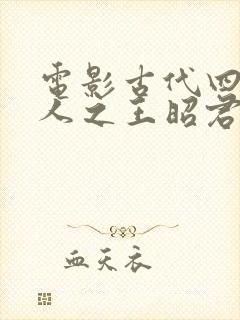 電影古代四
人之王昭君
血天衣